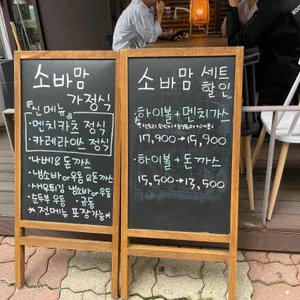 소바맘
가정식
신메뉴
·멘치카츠 정식
·카레라이스 정식
·나베 & 돈까스
·냉소바 or 우동 & 돈까스
·새우튀김 냉소바 or 우동
·순두부 우동
*전메뉴 포장가능*
소바맘 세트
할인
·하이볼 + 멘치카츠
17,900 → 15,900
·하이볼 + 돈까스
15,500 → 13,500